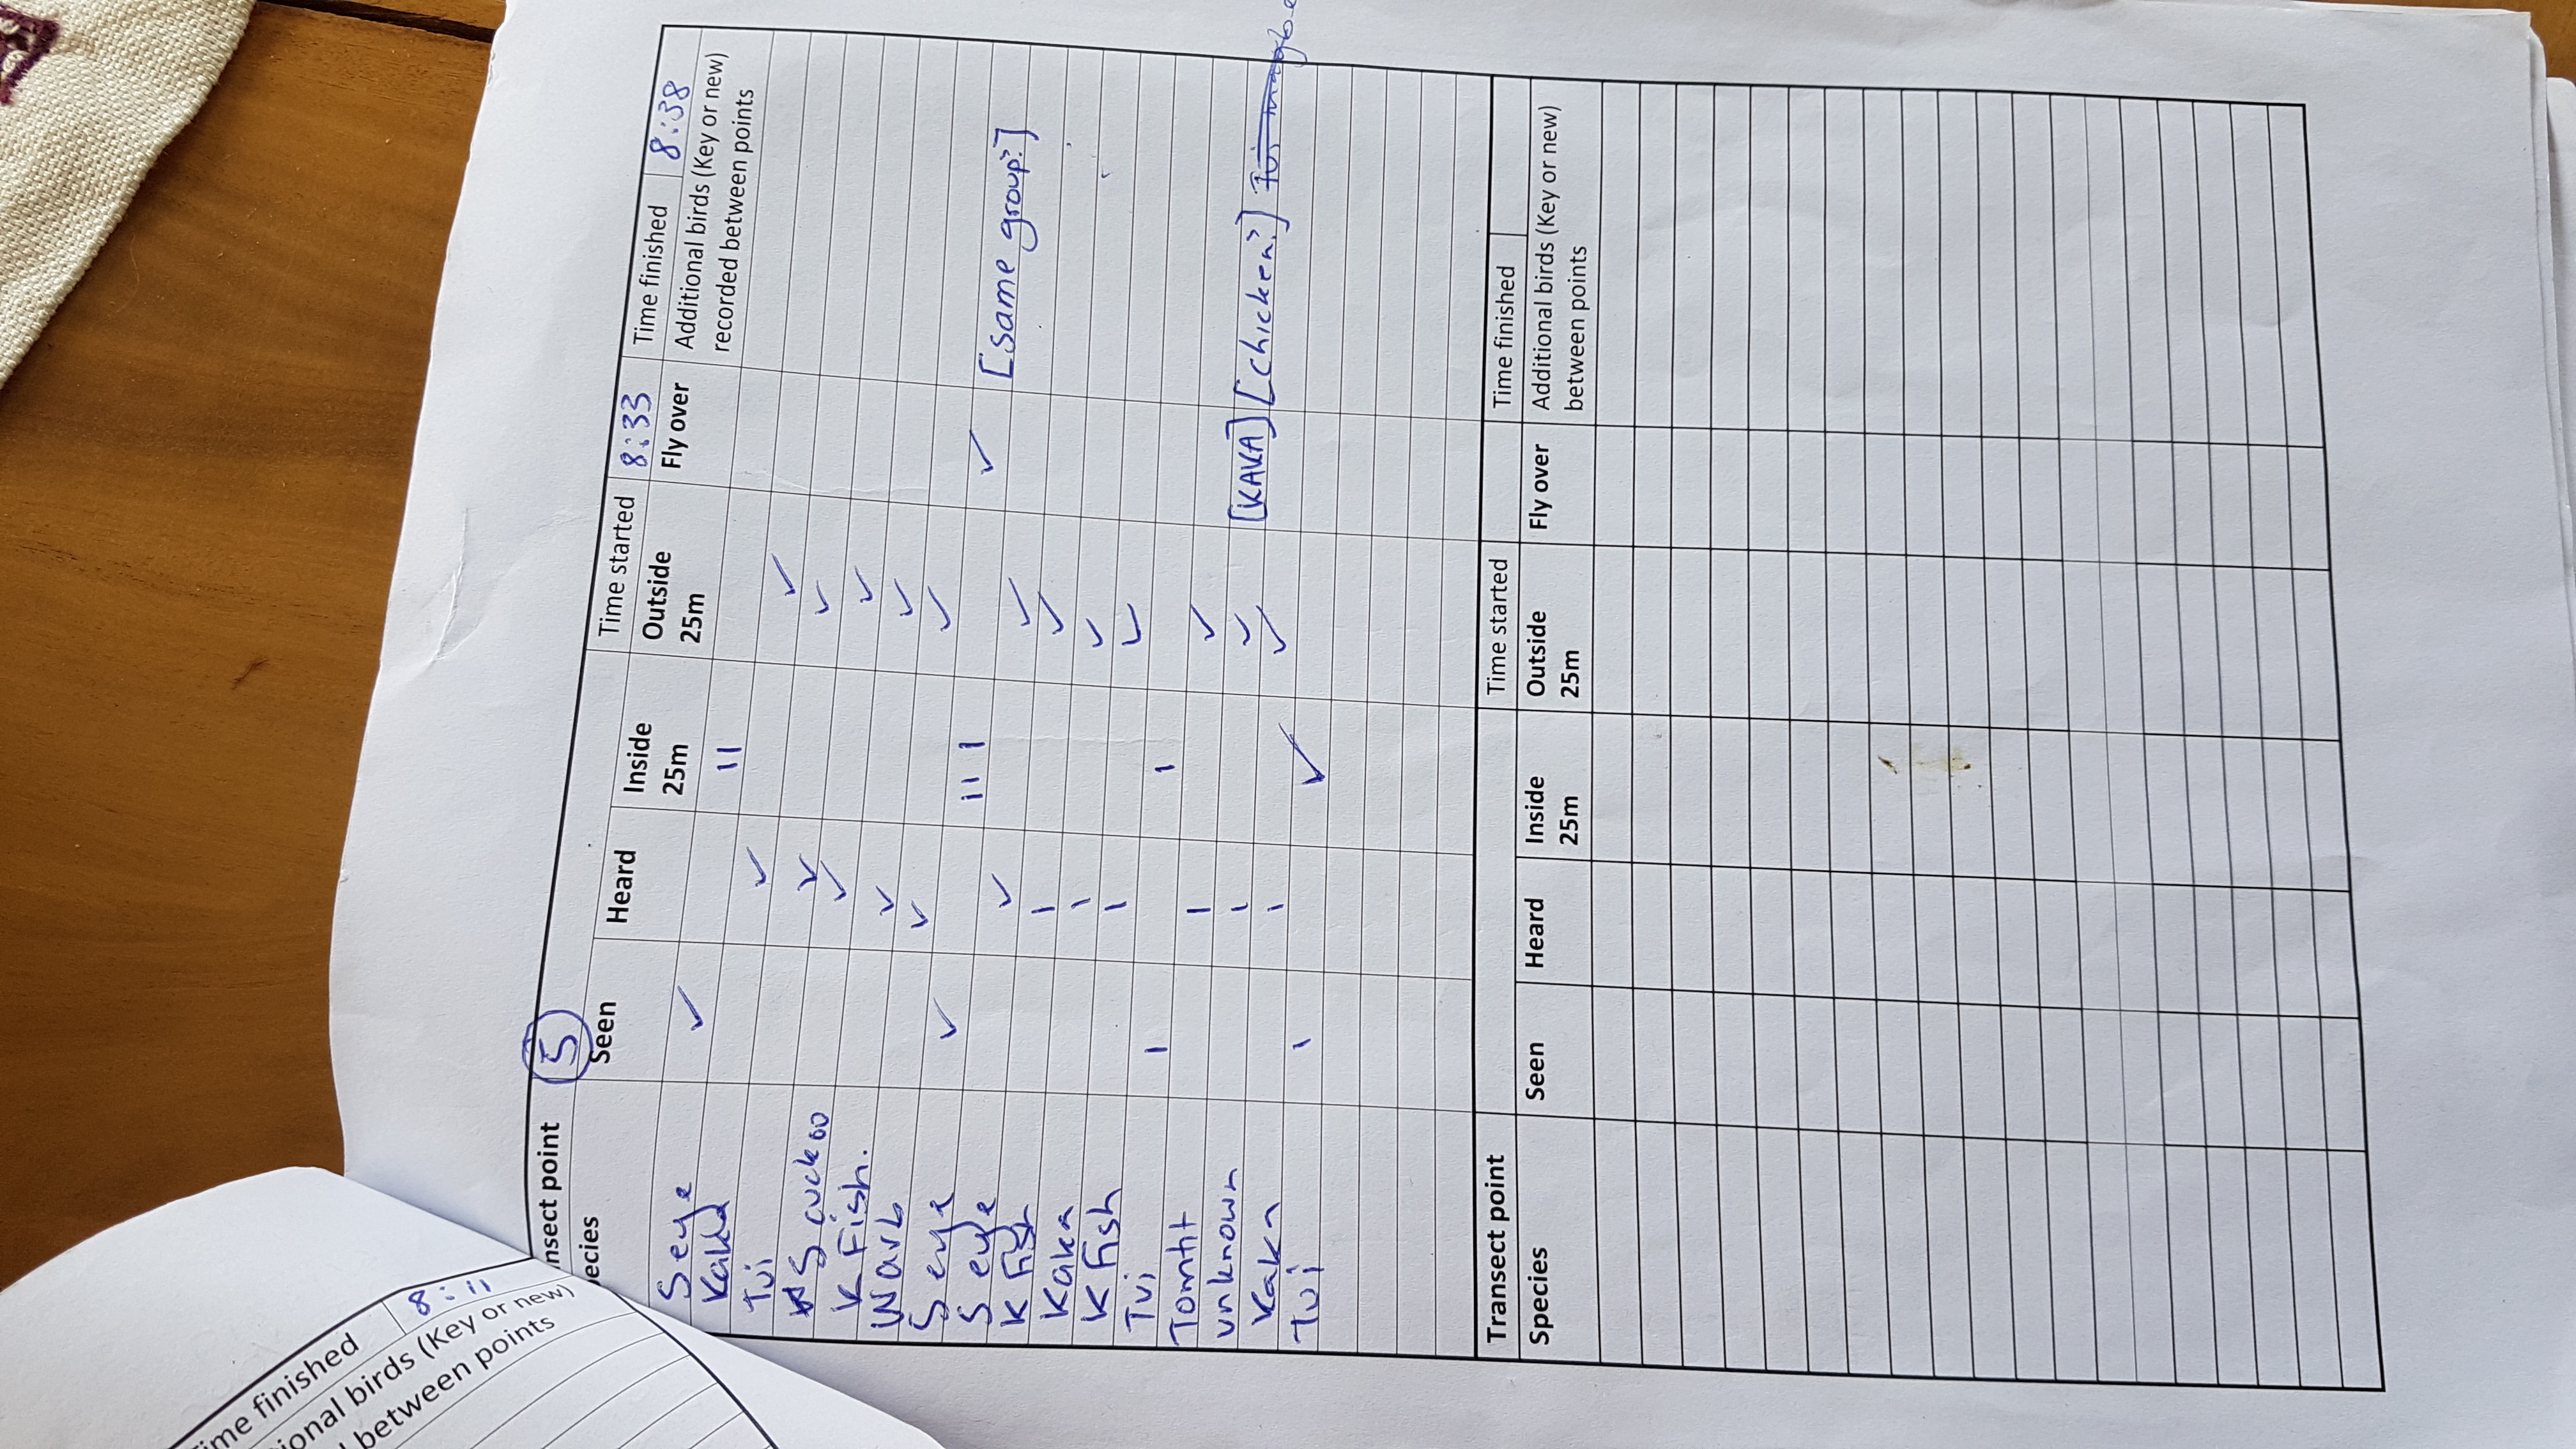 ime finished 8:11
ional birds (Key or new)
between points
nsect point 5 Time started 8:33 Time finished 8:38
ecies Seen Heard Inside 25m Outside 25m Fly over Additional birds (Key or new) recorded between points
Seye ✓ 11
Kaka ✓ ✓
Tui ✓ ✓
S cuckoo ✓ ✓
K Fish. ✓ ✓
Warb ✓ ✓
Seye ✓ 111 ✓ [same group?]
S eye ✓ ✓
K Fish 1 ✓
Kaka 1 ✓
K Fish 1 ✓
Tui 1 1
Tomtit 1 ✓
unknown 1 ✓ [KAKA] [chicken?] Tui maybe
Kaka 1 ✓
Tui 1 ✓
Transect point Time started Time finished
Species Seen Heard Inside 25m Outside 25m Fly over Additional birds (Key or new) between points